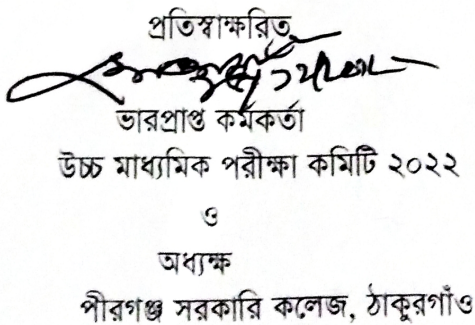 প্রতিস্বাক্ষরিত
ভারপ্রাপ্ত কর্মকর্তা
উচ্চ মাধ্যমিক পরীক্ষা কমিটি ২০২২
ও
অধ্যক্ষ
পীরগঞ্জ সরকারি কলেজ, ঠাকুরগাঁও